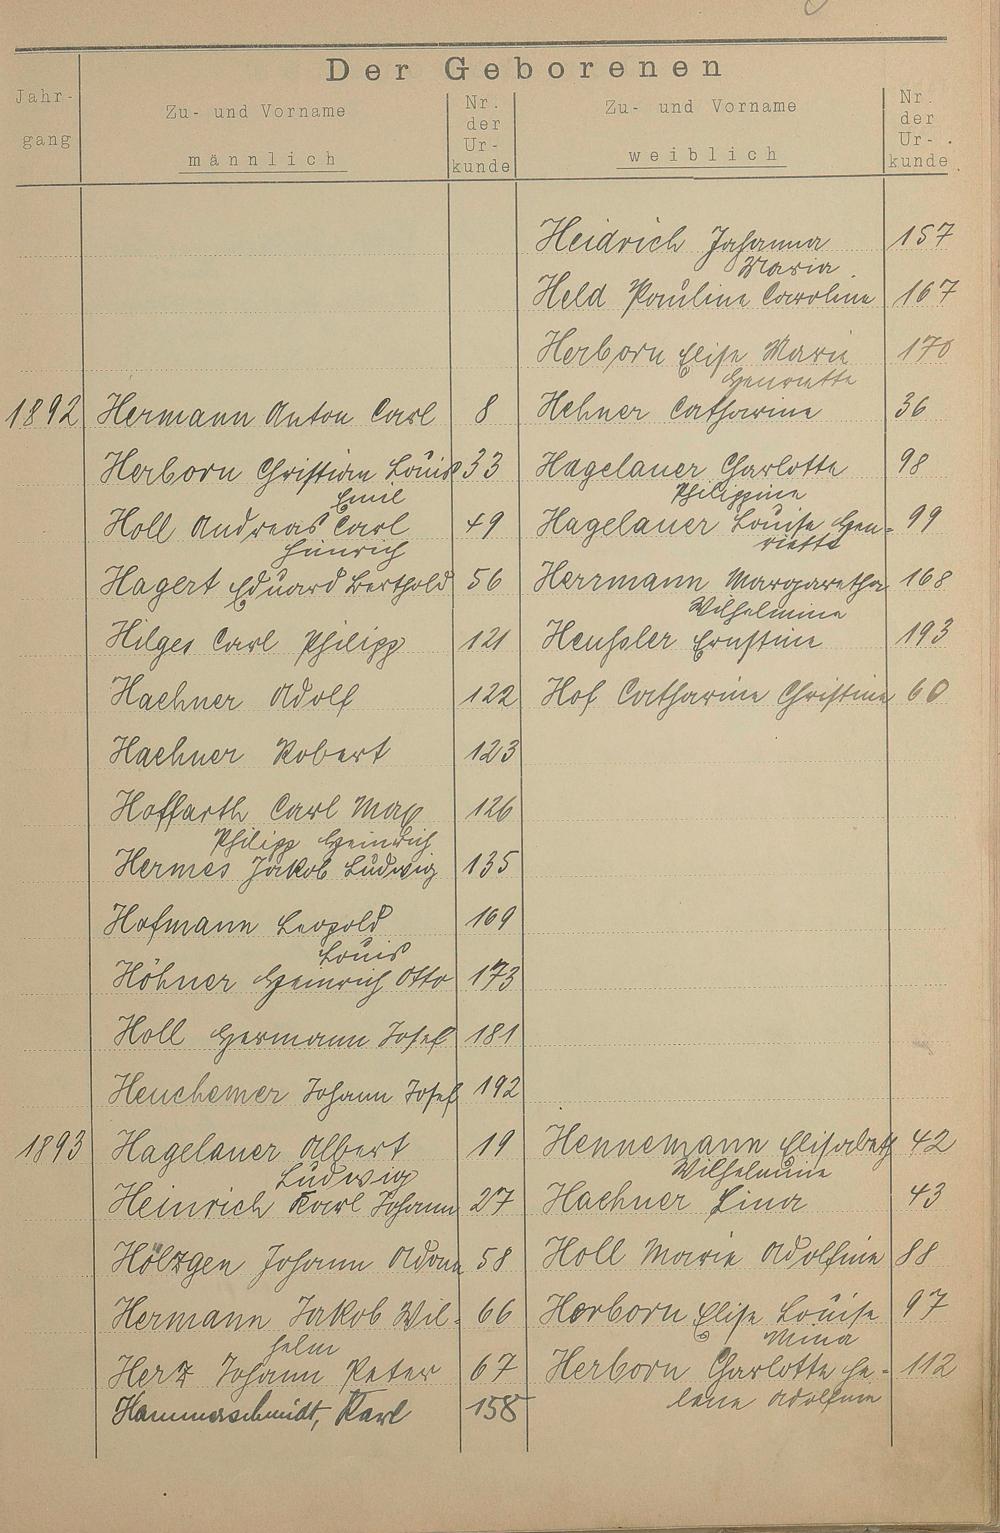 Der Geborenen
Jahr-
gang
Zu- und Vorname
männlich
Nr.
der
Ur-
kunde
Zu- und Vorname
weiblich
Nr.
der
Ur-
kunde
Heidrich Johanna 157
Maria
Held Pauline Caroline 167
Herborn Elise Marie 170
Henriette
1892 Hermann Anton Carl 8 Hehner Catharine 36
Herborn Christian Louis 33 Hagelauer Charlotte 98
Emil Philippine
Holl Andreas Carl 49 Hagelauer Louise Hen- 99
Heinrich riette
Hagert Eduard Berthold 56 Herrmann Margaretha 168
Wilhelmine
Hilges Carl Philipp 121 Heussler Ernstine 193
Haehner Adolf 122 Hof Catharine Christine 60
Haehner Robert 123
Hoffarth Carl Max 126
Philipp Heinrich
Hermes Jakob Ludwig 135
Hofmann Leopold 169
Louis
Höhner Heinrich Otto 173
Holl Hermann Josef 181
Heuchemer Johann Josef 192
1893 Hagelauer Albert 19 Hennemann Elisabeth 42
Ludwig Wilhelmine
Heinrich Karl Johann 27 Haehner Lina 43
Hölzgen Johann Adam 58 Holl Marie Adolfine 88
Hermann Jakob Wil- 66 Herborn Elise Louise 97
helm Mina
Herz Johann Peter 67 Herborn Charlotte He- 112
lene Adolfine
Hammerschmidt, Karl 158